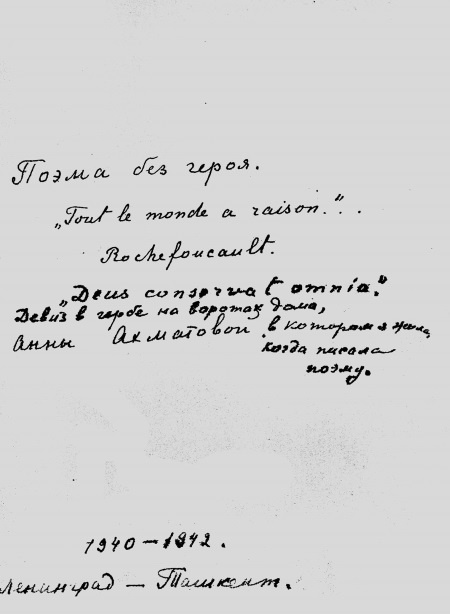 Поэма без героя.
„Tout le monde a raison.“.
Rochefoucault.
„Deus conservat omnia.“
Девиз в гербе на воротах дома,
Анны Ахматовой в котором я жила,
когда писала
поэму.
1940 — 1942.
Ленинград — Ташкент.